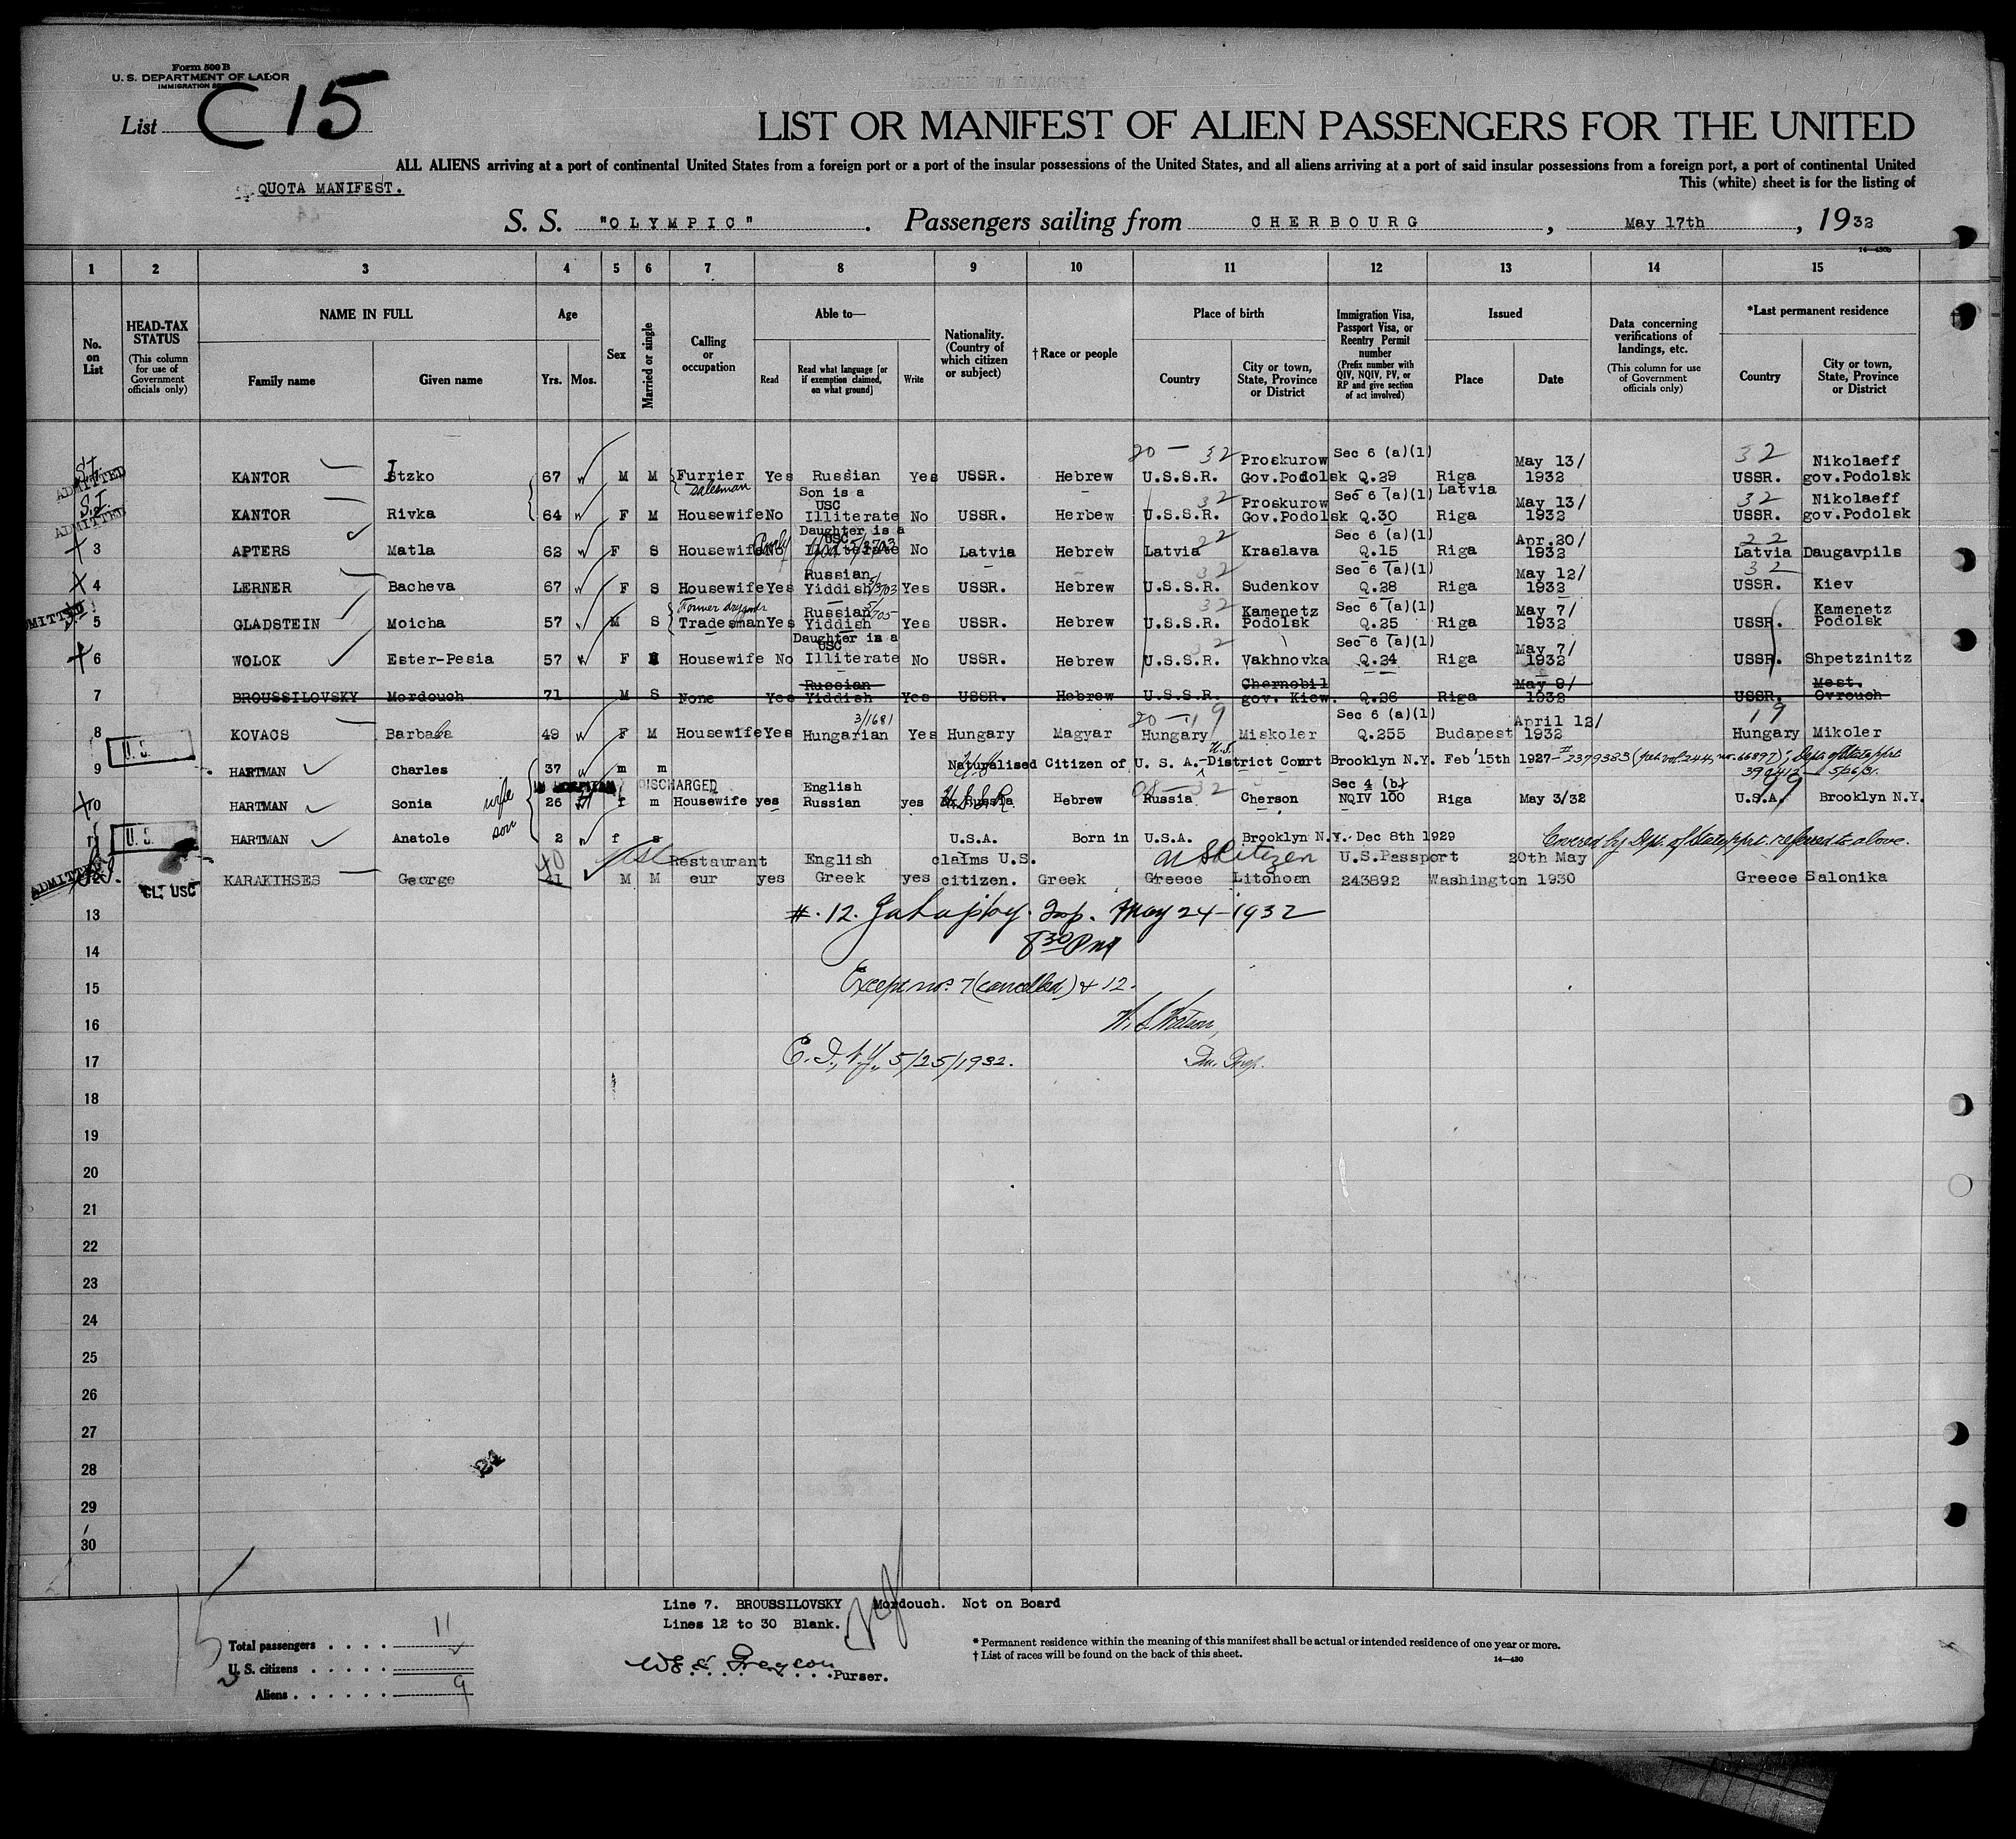 Form 500 B
U. S. DEPARTMENT OF LABOR
IMMIGRATION
List C 15
LIST OR MANIFEST OF ALIEN PASSENGERS FOR THE UNITED
ALL ALIENS arriving at a port of continental United States from a foreign port or a port of the insular possessions of the United States, and all aliens arriving at a port of said insular possessions from a foreign port, a port of continental United
QUOTA MANIFEST.
This (white) sheet is for the listing of
S. S. "OLYMPIC". Passengers sailing from CHERBOURG, May 17th, 1932
14—430b
1 2 3 4 5 6 7 8 9 10 11 12 13 14 15
No. on List
HEAD-TAX STATUS (This column for use of Government officials only)
NAME IN FULL Family name Given name
Age Yrs. Mos.
Sex
Married or single
Calling or occupation
Able to— Read Read what language [or if exemption claimed, on what ground] Write
Nationality. (Country of which citizen or subject)
†Race or people
Place of birth Country City or town, State, Province or District
Immigration Visa, Passport Visa, or Reentry Permit number (Prefix number with QIV, NQIV, PV, or RP and give section of act involved)
Issued Place Date
Data concerning verifications of landings, etc. (This column for use of Government officials only)
*Last permanent residence Country City or town, State, Province or District
20 — 32 Sec 6 (a)(1) 32
S.I. ADMITTED KANTOR Itzko 67 M M Furrier Salesman Yes Russian Yes USSR. Hebrew U.S.S.R. Proskurow Gov.Podolsk Q.29 Riga Latvia May 13/ 1932 USSR. Nikolaeff gov.Podolsk
S.I. ADMITTED KANTOR Rivka 64 F M Housewife No Son is a USC Illiterate No USSR. Herbew U.S.S.R. 32 Proskurow Gov.Podolsk Sec 6 (a)(1) Q.30 Riga May 13/ 1932 32 USSR. Nikolaeff gov.Podolsk
3 APTERS Matla 62 F S Housewife No Daughter is a USC Illiterate No Latvia Hebrew Latvia 22 Kraslava Sec 6 (a)(1) Q.15 Riga Apr.20/ 1932 22 Latvia Daugavpils
4 LERNER Bacheva 67 F S Housewife Yes Russian Yiddish Yes USSR. Hebrew U.S.S.R. 32 Sudenkov Sec 6 (a)(1) Q.28 Riga May 12/ 1932 32 USSR. Kiev
5 GLADSTEIN Moicha 57 M S Tradesman Yes Russian Yiddish Yes USSR. Hebrew U.S.S.R. 32 Kamenetz Podolsk Sec 6 (a)(1) Q.25 Riga May 7/ 1932 USSR. Kamenetz Podolsk
6 WOLOK Ester-Pesia 57 F Housewife No Daughter is a USC Illiterate No USSR. Hebrew U.S.S.R. 32 Vakhnovka Sec 6 (a)(1) Q.24 Riga May 7/ 1932 USSR. Shpetzinitz
7 BROUSSILOVSKY Mordouch 71 M S None Yes Russian Yiddish Yes USSR. Hebrew U.S.S.R. Chernobil gov. Kiew. Q.26 Riga May 9/ 1932 USSR. Mest. Ovrouch
8 KOVACS Barbaba 49 F M Housewife Yes 3/1681 Hungarian Yes Hungary Magyar 20 — 19 Hungary Miskoler Sec 6 (a)(1) Q.255 Budapest April 12/ 1932 19 Hungary Mikoler
U.S.
9 HARTMAN Charles 37 m m Naturalised Citizen of U. S. A.- U.S. District Court Brooklyn N.Y. Feb 15th 1927- # 2379383
IN HOSPITAL DISCHARGED
10 HARTMAN Sonia wife 26 f m Housewife yes English Russian yes U.S.S.R. Russia Hebrew Russia Cherson Sec 4 (b) NQIV 100 Riga May 3/32 99 U.S.A. Brooklyn N.Y.
11 U.S. HARTMAN Anatole son 2 f s U.S.A. Born in U.S.A. Brooklyn N.Y. Dec 8th 1929 Covered by Dept. of State pprt. referred to above.
ADMITTED CL. USC KARAKIHSES George 40 41 M M Restaurant eur yes English Greek yes claims U.S. citizen. Greek Greece US Citizen Litohoen U.S.Passport 243892 Washington 20th May 1930 Greece Salonika
13 #. 12. Insp. May 24-1932
14 8 30 PM
15 Except nos. 7 (cancelled) & 12.
16 W. S. Watson,
17 E. I., N.Y., 5/25/1932. Im. Insp.
18
19
20
21
22
23
24
25
26
27
28
29
30
24
Line 7. BROUSSILOVSKY Mordouch. Not on Board
Lines 12 to 30 Blank.
Total passengers . . . . 11
U. S. citizens . . . . .
Aliens . . . . . . 9
Purser.
* Permanent residence within the meaning of this manifest shall be actual or intended residence of one year or more.
† List of races will be found on the back of this sheet.
14—430